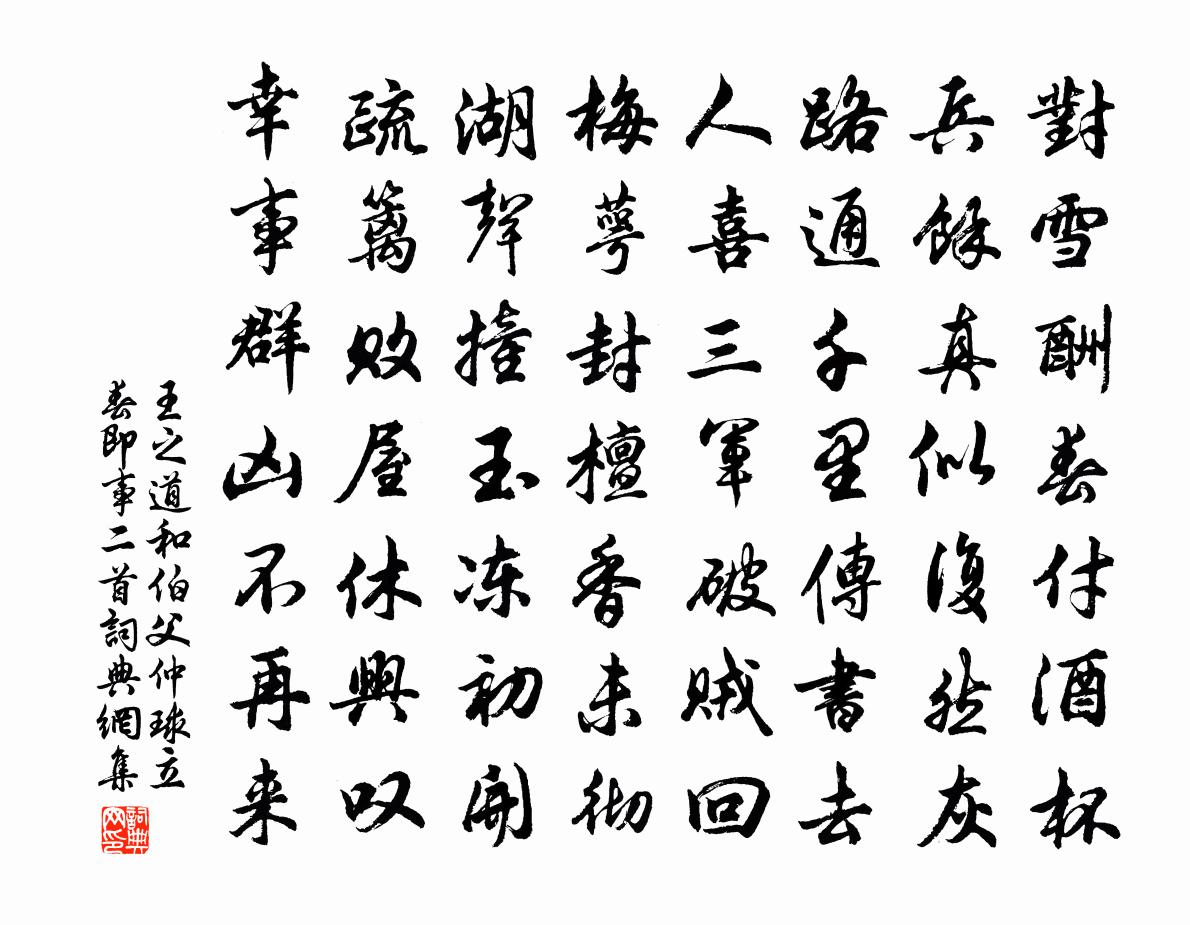 對雪酬春付酒杯
兵餘真似復然灰
路通千里傳書去
人喜三軍破賊回
梅萼封檀香未彻
湖聲撞玉冻初開
疏篱敗屋休興叹
幸事群凶不再来
王之道和伯父仲球立
春即事二首詞典網集
詞典
网印